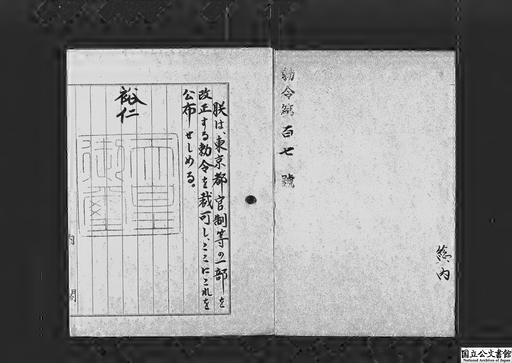 勅令第百七號
総内
朕は、東京都官制等の一部を
改正する勅令を裁可し、ここにこれを
公布せしめる。
裕仁
天皇
御璽
内閣
国立公文書館
National Archives of Japan